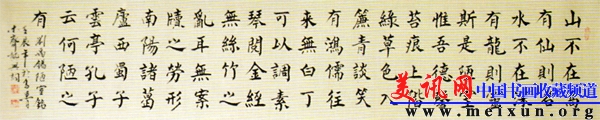 山不在高
有仙則名
水不在深
有龍則靈
斯是陋室
惟吾德馨
苔痕上階
綠草色入
簾青談笑
有鴻儒往
來無白丁
可以調素
琴閱金經
無絲竹之
亂耳無案
牘之勞形
南陽諸葛
廬西蜀子
雲亭孔子
云何陋之
有
劉禹錫陋室銘
壬辰年
美讯网
中国书画收藏频道
www.meixun.net